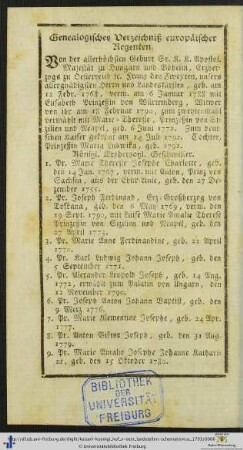 Genealogisches Verzeichniß europäischer
Regenten.
Von der allerhöchsten Geburt Sr. K. K. Apostol.
Majestät zu Hungarn und Böheim, Erzher-
zogs zu Oesterreich ec. Franz des Zweyten, unsers
allergnädigsten Herrn und Landesfürsten, geb. am
12 Febr. 1768, verm. am 6 Januar 1788 mit
Elisabeth Prinzeßin von Würtemberg, Witwer
von ihr am 18 Februar 1790, zum zweytenmal
verm. mit Maria Therese, Prinzeßin von Si-
zilien und Neapel, geb. 6 Juni 1772. Zum deut-
schen Kaiser gekrönt am 14 July 1792. Tochter,
Prinzeßin Maria Ludovika, geb. 1791.
Königl. Erzherzogl. Geschwister.
1. Pr. Marie Therese Josephe Charlotte, geb.
den 14 Jan. 1767, verm. mit Anton, Prinz von
Sachsen, aus der Chur-Linie, geb. den 27 De-
zember 1755.
2. Pr. Joseph Ferdinand, Erz-Großherzog von
Toskana, geb. den 6 May 1769, verm. den
19 Sept. 1790, mit Luise Marie Amalie Therese
Prinzeßin von Sizilien und Neapel, geb. den
27 April 1773.
3. Pr. Marie Anne Ferdinandine, geb. 21 April
1770.
4. Pr. Karl Ludwig Johann Joseph, geb. den
5 September 1771.
5. Pr. Alexander Leopold Joseph, geb. 14 Aug.
1772, erwählt zum Palatin von Ungarn, den
12 November 1790.
6. Pr. Joseph Anton Johann Baptist, geb. den
9 Merz 1776.
7. Pr. Marie Klementine Josephe, geb. 24 Apr.
1777.
8. Pr. Anton Viktor Joseph, geb. den 31 Aug.
1779.
9. Pr. Marie Amalie Josephe Johanne Kathari-
ne, geb. den 15 Oktober 1780.
BIBLIOTHEK
DER
UNIVERSITÄT
FREIBURG
© Universitätsbibliothek Freiburg